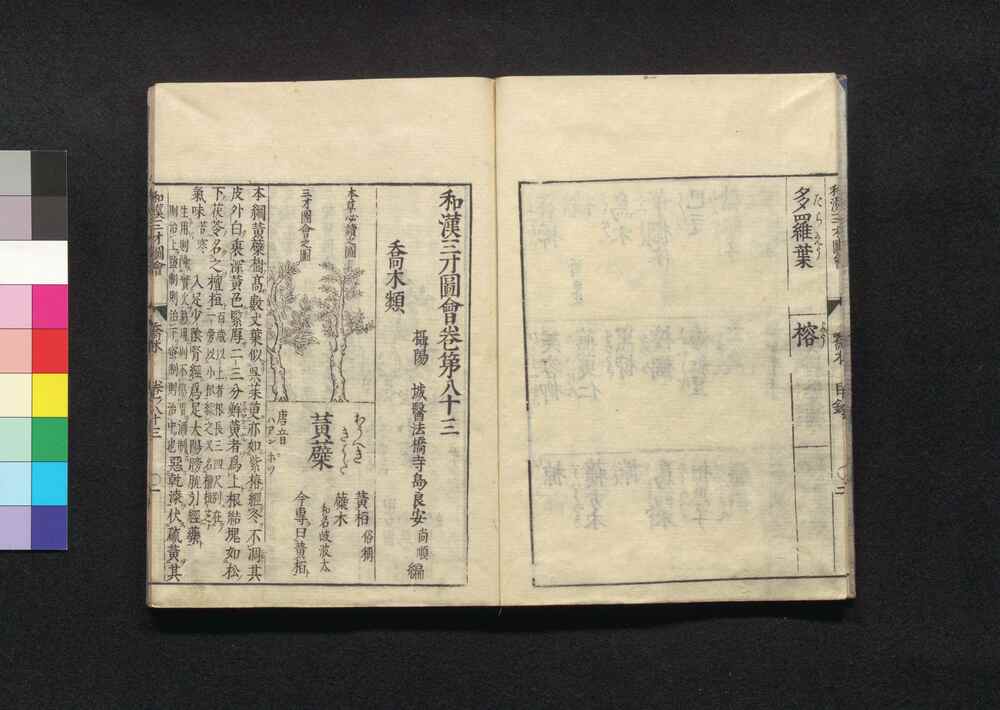 多羅葉
たらえう
榕
和漢三才圖會
喬木 目録
和漢三才圖會卷第八十三
攝陽 城醫法橋寺島良安 尚順 編
喬木類
本草必讀之圖
三才圖會之圖
わうへき
きはだ
黃蘗
唐音
ハアン ホツ
黃栢 俗稱
蘗木
和名岐波太
今專曰黃栢
本綱黃蘗樹高數丈葉似吳茱萸亦如紫椿經冬不凋其
皮外白裏深黃色緊厚二三分鮮黃者爲上根結塊如松
下茯苓名之檀桓
氣味苦寒 入足少陰腎經爲足太陽膀胱引經藥
惡乾漆伏硫黃其
和漢三才圖會
喬木
卷八十三